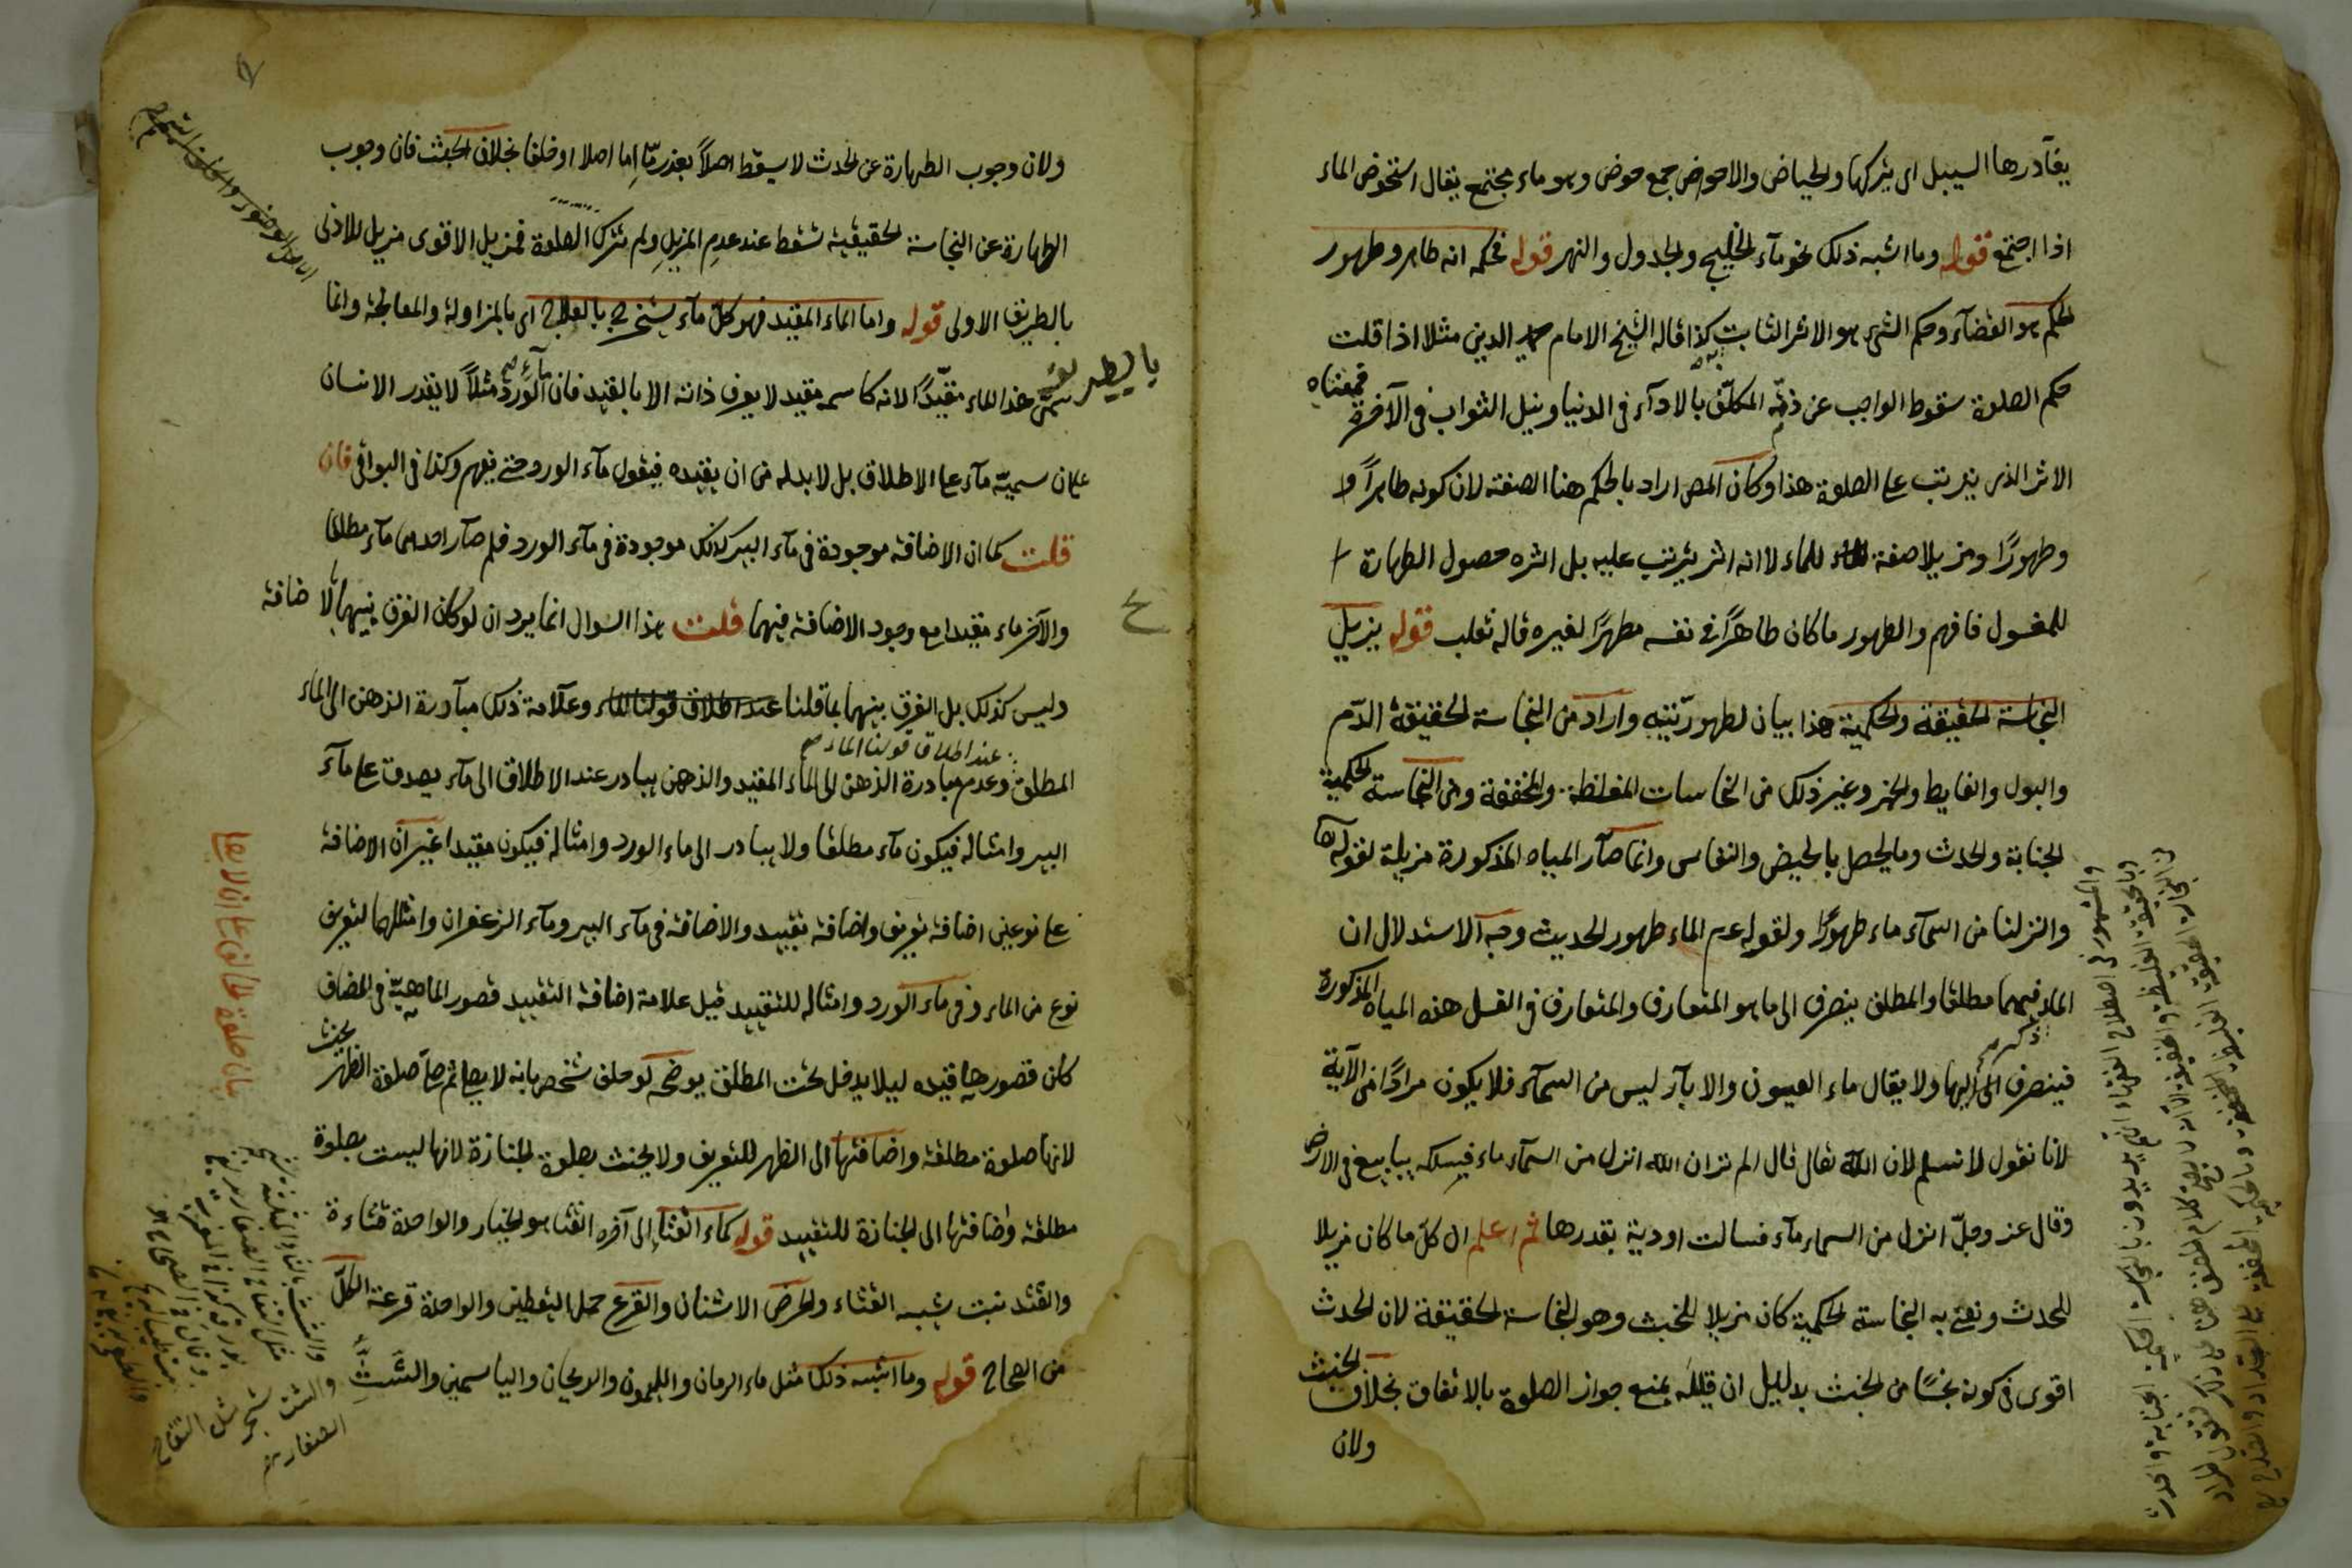 يغادرها السيل اى يتركها والحياض والاحواض جمع حوض وهو ماء مجتمع يقال استحوض الماء
اذا اجتمع قوله وما اشبه ذلك نحو مآء الخليج والجدول والنهر قوله فحكمه انه طاهر وطهور
الحكم هو القضآء وحكم الشئ هو الاثر الثابت به كذا قاله الشيخ الامام الدين مثلا اذا قلت
حكم الصلوة سقوط الواجب عن ذمة المكلف بالادآء فى الدنيا ونيل الثواب فى الآخرة فمعناه
الاثر الذى يترتب على الصلوة هذا وكان المص اراد بالحكم هنا الصفة لان كونه طاهراً
وطهورًا ومزيلا صفة للماء لا انه اثر يترتب عليه بل اثره حصول الطهارة
للمغسول فافهم والطهور ما كان طاهرًا فى نفسه مطهرًا لغيره قاله ثعلب قوله يزيل
النجاسة الحقيقة والحكمية هذا بيان لطهوريته واراد من النجاسة الحقيقة الدّم
والبول والغايط والخمر وغير ذلك من النجاسات المغلظة والمخففة ومن النجاسة الحكمية
الجنابة والحدث وما يحصل بالحيض والنفاس وانما صآر المياه المذكورة مزيلة لقوله تعا
وانزلنا من السمآء ماء طهورًا ولقوله عم الماء طهور الحديث وجه الاستدلال ان
الماء فيهما مطلقا والمطلق ينصرف الى ما هو المتعارف والمتعارف فى الغسل هذه المياه المذكورة
فينصرف اليها ولا يقال ماء العيون والابآر ليس من السمآء فلا يكون مرادًا من الآية
لانا نقول لا نسلم لان الله تعالى قال الم تر ان الله انزل من السمآء ماء فسلكه ينابيع فى الارض
وقال عز وجلّ انزل من السماء مآء فسالت اودية بقدرها ثم اعلم ان كلّ ما كان مزيلا
للحدث ونعنى به النجاسة الحكمية كان مزيلا للخبث وهو النجاسة الحقيقة لان الحدث
اقوى فى كونه نجسًا من الخبث بدليل ان قليله يمنع جواز الصلوة بالاتفاق بخلاف الخبث
ولان
ولان وجوب الطهارة عن الحدث لا يسقط اصلاً بعذر مّا اِما اصلا او خلفا بخلاف الخبث فان وجوب
الطهارة عن النجاسة الحقيقية تسقط عند عدم المزيل ولم تترك الصلوة فمزيل الاقوى مزيل للادنى
بالطريق الاولى قوله واما الماء المقيّد فهو كلّ مآء يستخرج بالعلاج اى بالمزاولة والمعالجة وانما
سمى هذا الماء مقيّدًا لانه كاسمه مقيد لا يعرف ذاته الا بالقيد فان مآء الورد مثلاً لا يقدر الانسان
على ان يسميّه مآء على الاطلاق بل لا بد له من ان يقيده فيقول مآء الورد حتى يفهم وكذا فى البواقى فان
قلت كما ان الاضافة موجودة فى مآء البير كذلك موجودة فى مآء الورد فلم صآر احدهما مآء مطلقا
والآخر ماء مقيدا مع وجود الاضافة فيهما قلت هذا السوال انما يرد ان لو كان الفرق بينهما بالاضافة
وليس كذلك بل الفرق بينهما بما قلنا عند اطلاق قولنا الماء وعلامة ذلك مبآدرة الذهن الى الماء
عند اطلاق قولنا الماء صح
المطلق وعدم مبادرة الذهن الى الماء المقيد والذهن يبادر عند الاطلاق الى مآء يصدق على مآء
البير وامثاله فيكون مآء مطلقا ولا يبادر الى ماء الورد وامثاله فيكون مقيدا غير ان الاضافة
على نوعين اضافة تعريف واضافة تقييد والاضافة فى مآء البير ومآء الزعفران وامثلهما لتعريف
نوع من الماء وفى ماء الورد وامثاله للتقييد قيل علامة اضافة التقييد قصور الماهيّة فى المضاف
كان قصورها قيده ليلا يدخل تحت المطلق يوضحه لو حلف شخص بانه لا يصلى ثم صلى صلوة الظهر يحنث
لانها صلوة مطلقة واضافتها الى الظهر للتعريف ولا يحنث بصلوة الجنازة لانها ليست بصلوة
مطلقة واضافتها الى الجنازة للتقييد قوله كماء القثآء الى آخره القثا هو الخيار والواحدة قثاءة
والقثد نبت يشبه القثاء والحرض الاشنان والقرع حمل اليقطين والواحدة قرعة الكلّ
من الصحاح قوله وما اشبه ذلك مثل ماء الرمان والليمون والريحان والياسمين والشَّثِ